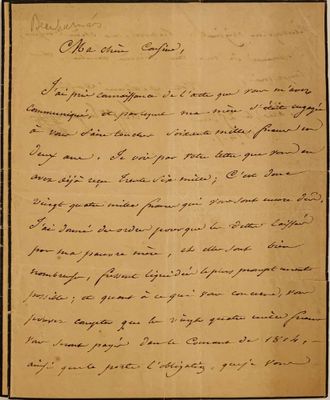 Beauharnais
Ma chère Cousine,
J'ai pris connaissance de l'acte que vous m'avez
communiqué, et par lequel ma mère s'était engagée
à vous faire toucher Soixante mille francs en
deux ans. Je vois par votre lettre que vous en
avez déjà reçu trente six mille; C'est donc
vingt quatre mille francs qui vous sont encore dûs.
J'ai donné des ordres pour que les dettes laissées
par ma pauvre mère, et elles sont bien
nombreuses, fussent liquidées le plus promptement
possible; et quant à ce qui vous concerne, vous
pouvez compter que les vingt quatre mille francs
vous seront payés dans le Courant de 1814, —
ainsi que le porte l'obligation, que je vous